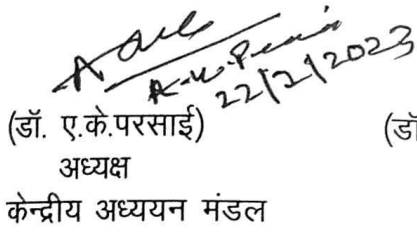 22/2/2023
(डॉ. ए.के.परसाई) (डॉ
अध्यक्ष
केन्द्रीय अध्ययन मंडल